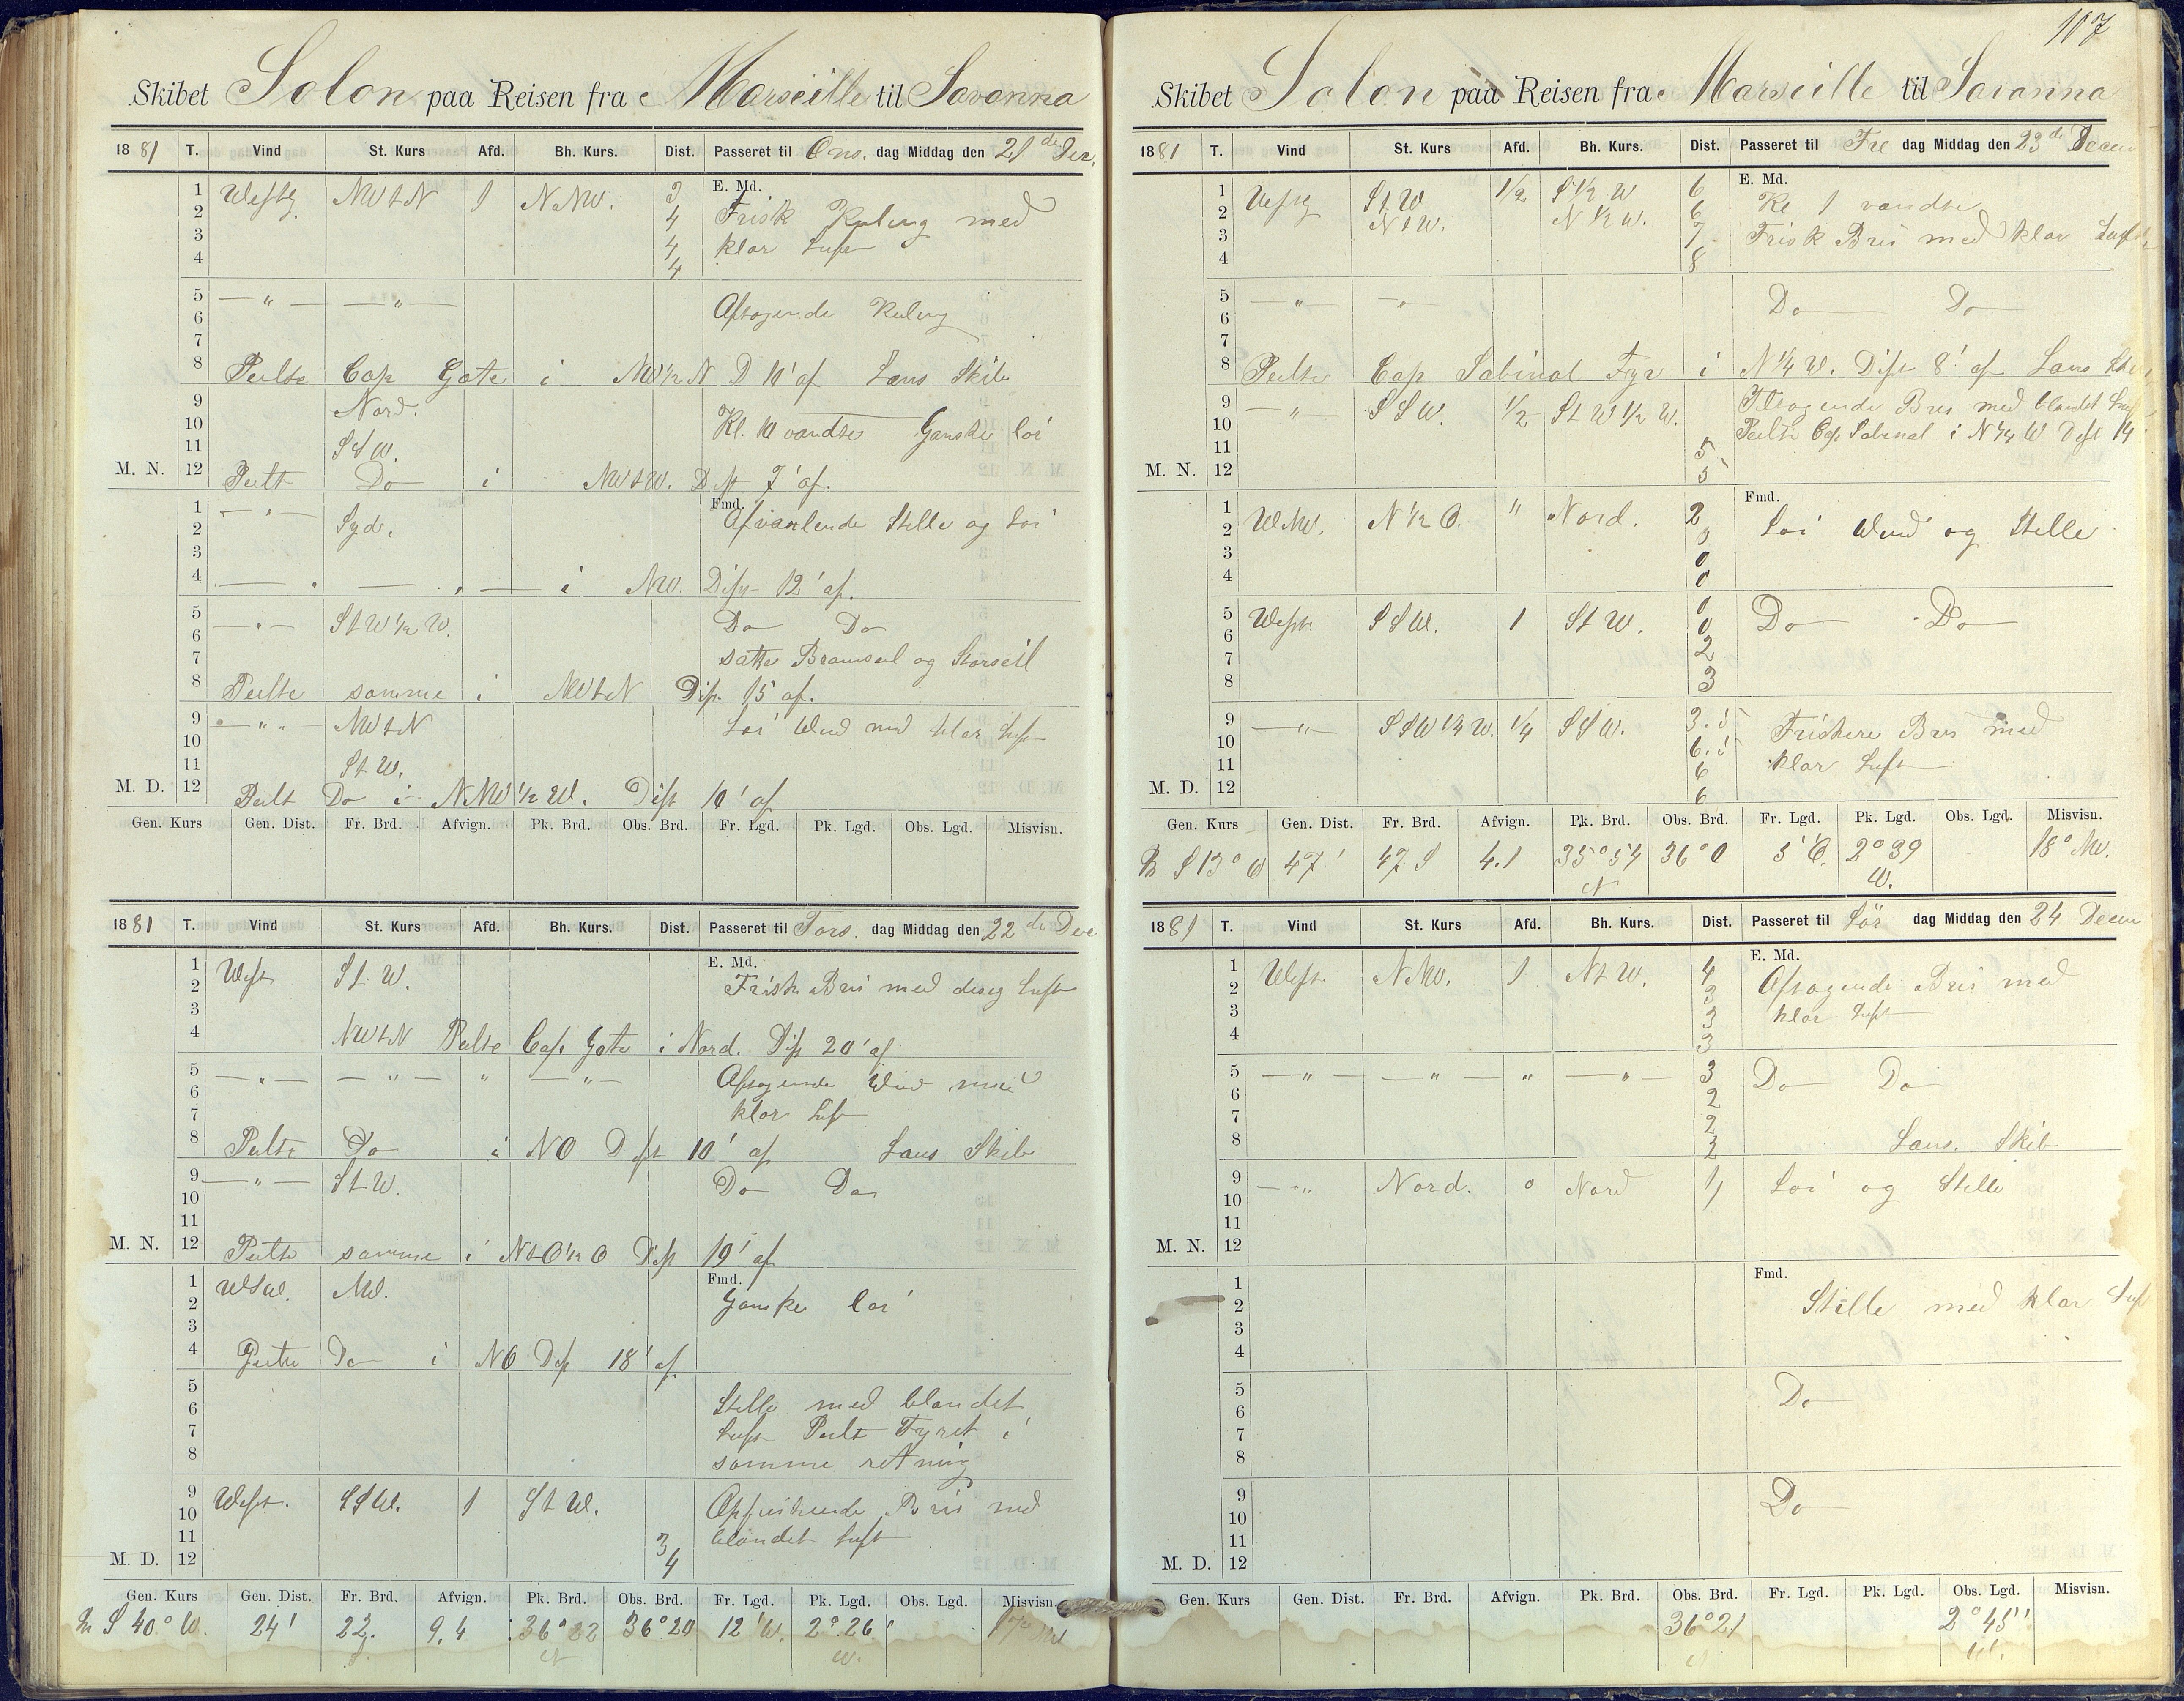 Skibet Solon paa Reisen fra Marseille til Savanna
1881 T. Vind St. Kurs Afd. Bh. Kurs. Dist. Passeret til Ons. dag Middag den 21de Dec.
E. Md.
1 Westlg NWtN 1 NNW. 3 Frisk Kuling med
2 4
3 4 klar Luft
4 4
5 — " — — " — Aftagende Kuling
6
7
8 Peilte Cap Gate i NW½N D 10' af Lans Skib
9 Nord.
10 Kl. 10 vandte Ganske loi
11 StW.
M. N. 12 Peilt Do i NWtW. Dist 7' af.
Fmd.
1 — " — Syd. Afvexlende Stille og Loi
2
3
4 — " — — " — i NW. Dist 12' af.
5 — " — StW½W. Do Do
6
7 satte Bramseil og Storseil
8 Peilte samme i NWtN Dist. 15 af.
9 — " — NWtN Loi Wind med klar Luft
10
11 StW.
M. D. 12 Peilt Do i NNW½W. Dist 10' af
Gen. Kurs Gen. Dist. Fr. Brd. Afvign. Pk. Brd. Obs. Brd. Fr. Lgd. Pk. Lgd. Obs. Lgd. Misvisn.
1881 T. Vind St. Kurs Afd. Bh. Kurs. Dist. Passeret til Tors. dag Middag den 22de Dec
E. Md.
1 West StW. Frisk Bris med diseg Luft
2
3
4 NWtN Peilte Cap Gate i Nord. Dist 20' af
5 — " — — " — " — " — Aftagende Wind med
6
7 klar Luft
8 Peilte Do i NO Dist 10' af Lans Skib
9 — " — StW. Do Do
10
11
M. N. 12 Peilte samme i NtO½O Dist 19' af
Fmd.
1 WSW. NW. Ganske loi
2
3
4 Peilte Do i NO Dist 18' af
5 Stille med blandet
6 Luft Peilt Fyret i
7 samme retning
8
9 West. SSW. 1 StW. Opfriskende Bris med
10
11 3 blandet Luft
M. D. 12 4
Gen. Kurs Gen. Dist. Fr. Brd. Afvign. Pk. Brd. Obs. Brd. Fr. Lgd. Pk. Lgd. Obs. Lgd. Misvisn.
S 40° W. 24' 22. 9,4 36°22 N 36°20 12'W. 2° 26' W.
107
Skibet Solon paa Reisen fra Marseille til Savanna
1881 T. Vind St. Kurs Afd. Bh. Kurs. Dist. Passeret til Fre dag Middag den 23de Decem
E. Md.
1 Westlg StW 1/2 S½W 6 Kl 1 vandte
2 NtW. N½W. 6
3 7 Frisk Bris med klar Luft
4 8
5 — " — — " — Do Do
6
7
8 Peilte Cap Sabinal Fyr i N¼W. Dist 8' af Lans Skib
9 — " — SSW. 1/2 StW½W. Tiltagende Bris med blandet Luft
10 Peilte Cap Sabinal i N¼W Dist 14
11 5
M. N. 12 5
Fmd.
1 WNW. N½O. " Nord. 2 Loi Wind og Stille
2 0
3 0
4 0
5 West. SSW. 1 StW. 0 Do Do
6 0
7 2
8 3
9 — " — SSW¼W. 1/4 SSW. 3.5 Friskere Bris med
10 6.5
11 6 klar Luft
M. D. 12 6
Gen. Kurs Gen. Dist. Fr. Brd. Afvign. Pk. Brd. Obs. Brd. Fr. Lgd. Pk. Lgd. Obs. Lgd. Misvisn.
S 13° O 47' 47 S 4.1 35°54 N 36°0 5'O. 2°39 W. 18° NW.
1881 T. Vind St. Kurs Afd. Bh. Kurs. Dist. Passeret til Lör dag Middag den 24 Decem
E. Md.
1 West NNW. 1 NtW. 4 Aftagende Bris med
2 3
3 3 klar Luft
4 3
5 — " — — " — " — " — 3 Do Do
6 2
7 2
8 2 Lans. Skib
9 — " — Nord. 0 Nord 1 Loi og Stille
10 1
11
M. N. 12
Fmd.
1
2 Stille med klar Luft
3
4
5 Do
6
7
8
9 Do
10
11
M. D. 12
Gen. Kurs Gen. Dist. Fr. Brd. Afvign. Pk. Brd. Obs. Brd. Fr. Lgd. Pk. Lgd. Obs. Lgd. Misvisn.
36°21 N 2°45'' W.